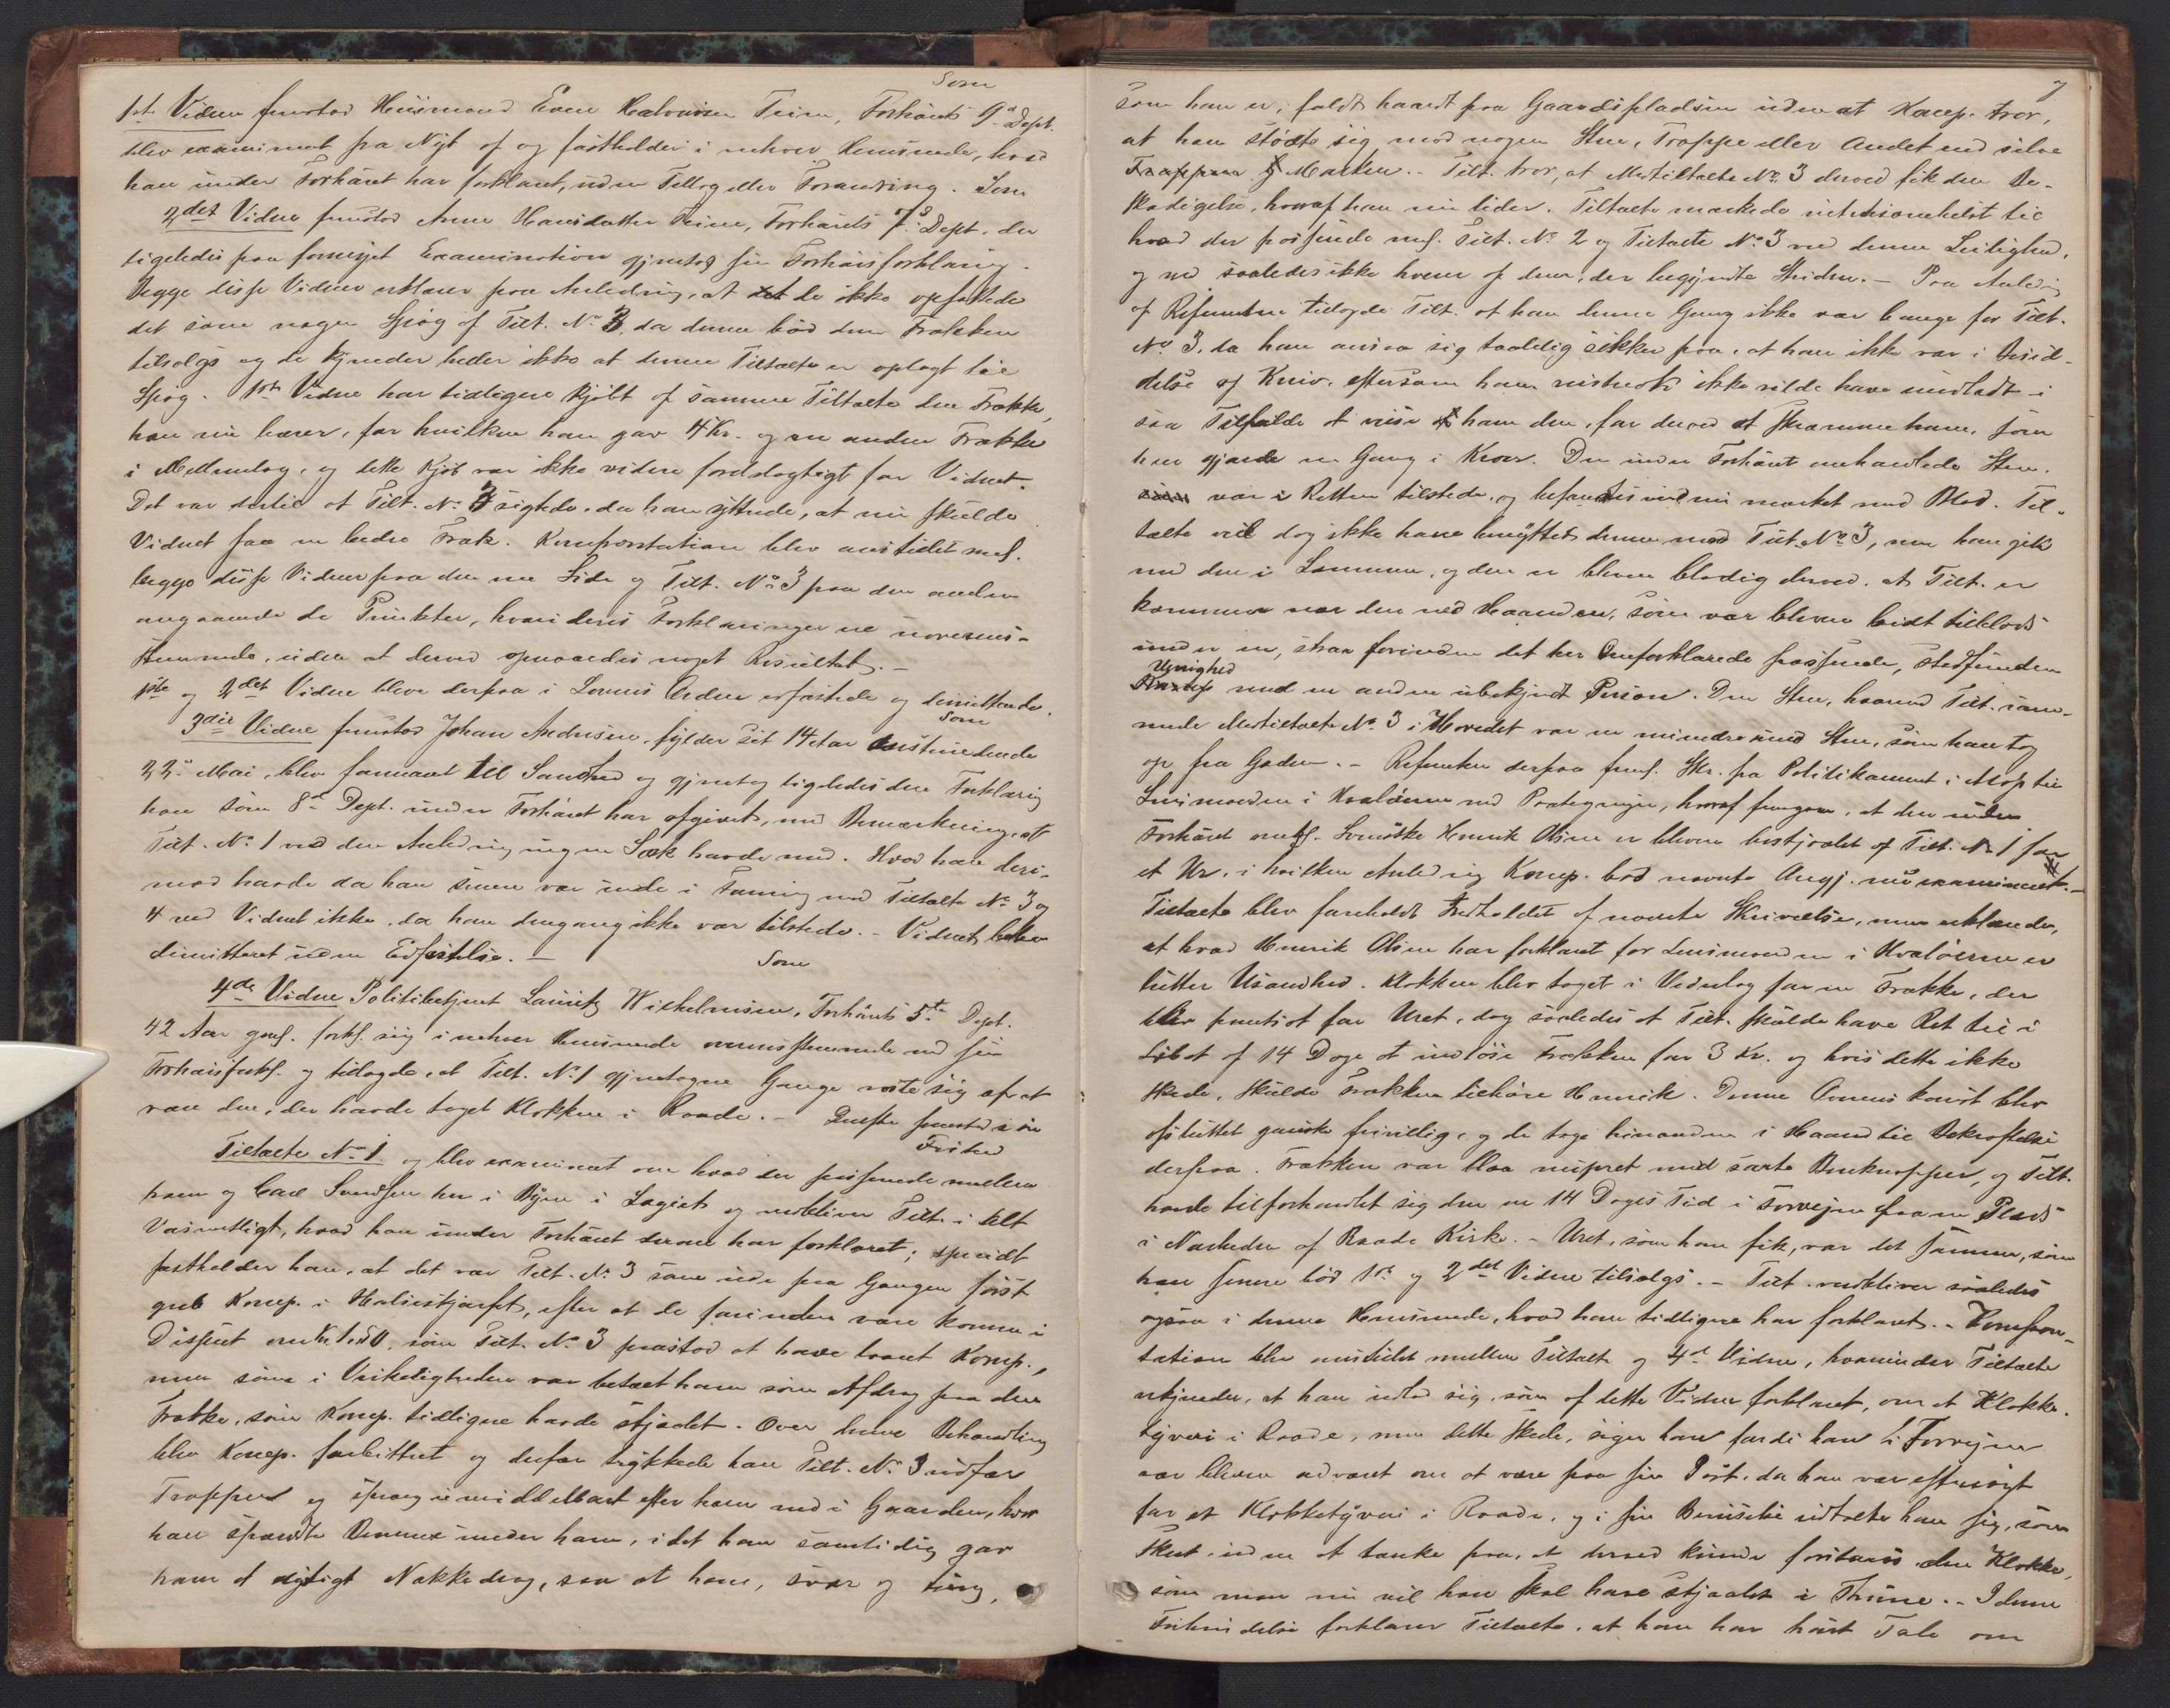 Som
1ste Vidne fremstod Husmand Even Halvorsen Teien, Forhørets 9de Dept.
blev examineret fra Nyt af og fastholder i enhver Henseende, hvad
han under Forhøret har forklaret, uden Tillæg eller Forandring. Som
2det Vidne fremstod Anne Hansdatter Teien, Forhørets 7de Dept. der
ligeledes paa fornyet Examination gjentog sin Forhørsforklaring.
Begge disse Vidner erklærer paa Anledning, at de ikke opfattede
det som nogen Spøg af Tilt. No 3, da denne bød dem Frakken
tilsalgs og de kjender heller ikke at denne Tiltalte er oplagt til
Spøg. 1ste Vidne har tidligere kjøbt af samme Tiltalte den Frakke,
han nu bærer, for hvilken han gav 4 Kr. og en anden Frakke
i Mellemlag, og dette Kjøb var ikke videre fordelagtigt for Vidnet.
Det var dertil at Tilt. No 3 sigtede, da han yttrede, at nu skulde
Vidnet faa en bedre Frak. Konfrontation blev anstillet mel.
begge disse Vidner paa den ene Side og Tilt. No 3 paa den anden
angaaende de Punkter, hvori deres Forklaringer er uoverens-
stemmende, uden at derved opnaaedes noget Resultat. -
1ste og 2det Vidne bleve derpaa i Lovens Orden edfæstede og dimitterede.
Som
3die Vidne fremstod Johan Andresen, fylder sit 14de Aar
22de Mai, blev formanet til Sandhed og gjentog ligeledes den Forklaring
han som 8de Dept. under Forhøret har afgivet, med Bemærkning, at
Tilt. No 1 ved den Anledning ingen Sæk havde med. Hvad han deri-
mod havde da han senere var inde i med Tiltalte No 3 og
4 ved Vidnet ikke, da han dengang ikke var tilstede. - Vidnet blev
dimitteret uden Edfæstelse. - Som
4de Vidne Politibetjent Lauritz Wilhelmsen, Forhørets 5te Dept.
42 Aar gml. forkl. sig i enhver Henseende overensstemmende med sin
Forhørsforkl. og tilagde, at Tilt. No 1 gjentagne Gange roste sig af at
være den, der havde taget Klokken i Raade. - Derefter fremstod i sin
Frihed
Tiltalte No 1 og blev examineret om hvad der passerede mellem
ham og Carl Svendsen her i Byen i Logiet og vedbliver Tilt. i Alt
Væsentligt, hvad han under Forhøret derom har forklaret; specielt
fastholder han, at det var Tilt. No 3 som ude paa Gangen først
greb Komp. i Halstørklæ, efter at de forinden vare komne i
Disput om som Tilt. No 3 paastod at have laant Komp.,
men som i Virkeligheden var betalt ham som Afdrag paa den
Frakke, som Komp. tidligere havde stjaalet. Over denne Behandling
blev Komp. forbittret og derfor trykkede han Tilt. No 3 udfor
Trappen og sprang umiddelbart efter ham ned i Gaarden, hvor
han spændte Benene under ham, idet han samtidig gav
ham et dygtigt Nakkedrag, saa at han, svær og tung,
7
som han er, faldt haardt paa Gaardspladsen uden at Komp. tror,
at han stødte sig mod nogen Sten, Trappe eller Andet end selve
Marken. - Tilt. tror, at Medtiltalte No 3 derved fik den Be-
skadigelse, hvoraf han nu lider. Tiltalte mærkede intetsomhelst til
hvad der passerede mel. Tilt. No 2 og Tiltalte No 3 ved denne Leilighed,
og ved saaledes ikke hvem af dem, der begyndte Striden. - Paa Anledning
af Referenten tilagde Tilt. at han denne Gang ikke var bange for Tilt.
No 3, da han ansaa sig taalelig sikker paa, at han ikke var i Besid-
delse af Kniv, eftersom han vistnok ikke vilde have undladt i
saa Tilfælde at vise ham den, for derved at skræmme ham, som
han gjorde en Gang i Kroer. Den under Forhøret omhandlede Sten
var i Retten tilstede, og befandtes mærket med Blod. Til-
talte vil dog ikke have benyttet denne mod Tilt. No 3, men han gik
med den i Lommen, og den er bleven blodig derved, at Tilt. er
kommen nær den med Haanden, som var bleven bidt tilblods
under en, strax forinden det her Omforklarede passerede, stedfunden
Uenighed
med en anden ubekjendt Person. Den Sten, hvormed Tilt. ram-
mede Medtiltalte No 3 i Hovedet var en mindre rund Sten, som han tog
op fra Gaden. - Referenten derpaa freml. Skr. fra Politikammeret i Moss til
Lensmanden i Hvaløerne med Paategninger, hvoraf fremgaar, at den under
Forhøret omhl. Svenske Henrik Olsen er bleven bestjaalet af Tilt. No 1 for
et Ur, i hvilken Anledning Komp. bad nævnte Angj. nu examineret. -
Tiltalte blev foreholdt Indholdet af nævnte Skrivelse, men erklærede,
at hvad Henrik Olsen har forklaret for Lensmanden i Hvaløerne er
lutter Usandhed. Klokken blev taget i Vederlag for en Frakke, der
blev pantsat for Uret, dog saaledes at Tilt. skulde have Ret til i
Løbet af 14 Dage at indløse Frakken for 3 Kr. og hvis dette ikke
skede, skulde Frakken tilhøre Henrik. Denne Overenskomst blev
afsluttet ganske frivillig, og de toge hinanden i Haand til Bekræftelse
derpaa. Frakken var blaa nupret med sorte Benknapper, og Tilt.
havde tilforhandlet sig den en 14 Dages Tid i Forveien fra en Plads
i Nærheden af Raade Kirke. - Uret, som han fik, var det samme, som
han senere bød 1ste og 2det Vidne tilsalgs. - Tilt. vedbliver saaledes
ogsaa i denne Henseende, hvad han tidligere har forklaret. - Konfron-
tation blev anstillet mellem Tiltalte og 4de Vidne, hvorunder Tiltalte
erkjender, at han udlod sig, som af dette Vidne forklaret, om et Klokke-
tyveri i Raade, men dette skede, siger han fordi han i Forveien
var bleven advaret om at være paa sin Post, da han var eftersøgt
for et Klokketyveri i Raade, og i sin udtalte han sig, som
skeet, uden at tænke paa, at derved kunde forstaaes den Klokke,
som man nu vil han skal have stjaalet i Thune. - I denne
Forbindelse forklarer Tiltalte, at han har hørt Tale om